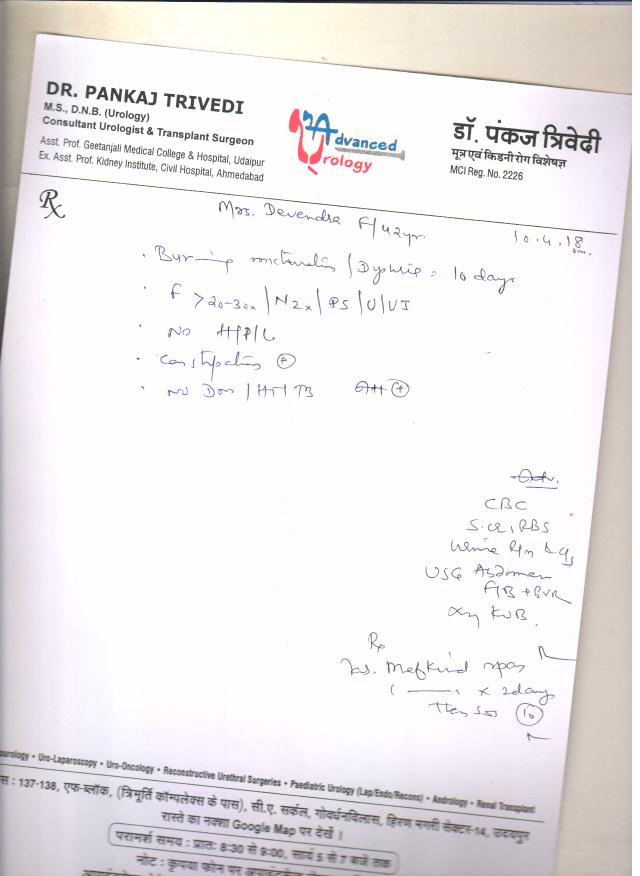 DR. PANKAJ TRIVEDI
M.S., D.N.B. (Urology)
Consultant Urologist & Transplant Surgeon
Asst. Prof. Geetanjali Medical College & Hospital, Udaipur
Ex. Asst. Prof. Kidney Institute, Civil Hospital, Ahmedabad
Advanced
Urology
डॉ. पंकज त्रिवेदी
मूत्र एवं किडनी रोग विशेषज्ञ
MCI Reg. No. 2226
Rx
Mrs. Devendra F/42yr
10.4.18
Burning micturition / Dysuria = 10 days
F >20-30x / N2x / PS / U / UI
No H/P/L
Constipation +
No DM / HT / TB
Adv.
CBC
S.cr, RBS
Urine R/m &
USG Abdomen
F/B + PVR
Xray KUB.
Rx
Mefkind spas
x 2days
10
urology • Uro-Laparoscopy • Uro-Oncology • Reconstructive Urethral Surgeries • Paediatric Urology (Lap/Endo/Recons) • Andrology • Renal Transplant
स : 137-138, एफ-ब्लॉक, (त्रिमूर्ति कॉम्पलेक्स के पास), सी.ए. सर्कल, गोवर्धनविलास, हिरण मगरी सेक्टर-14, उदयपुर
रास्ते का नक्शा Google Map पर देखें ।
परामर्श समय : प्रातः 8:30 से 9:00, सायं 5 से 7 बजे तक
नोट : कृपया फोन पर